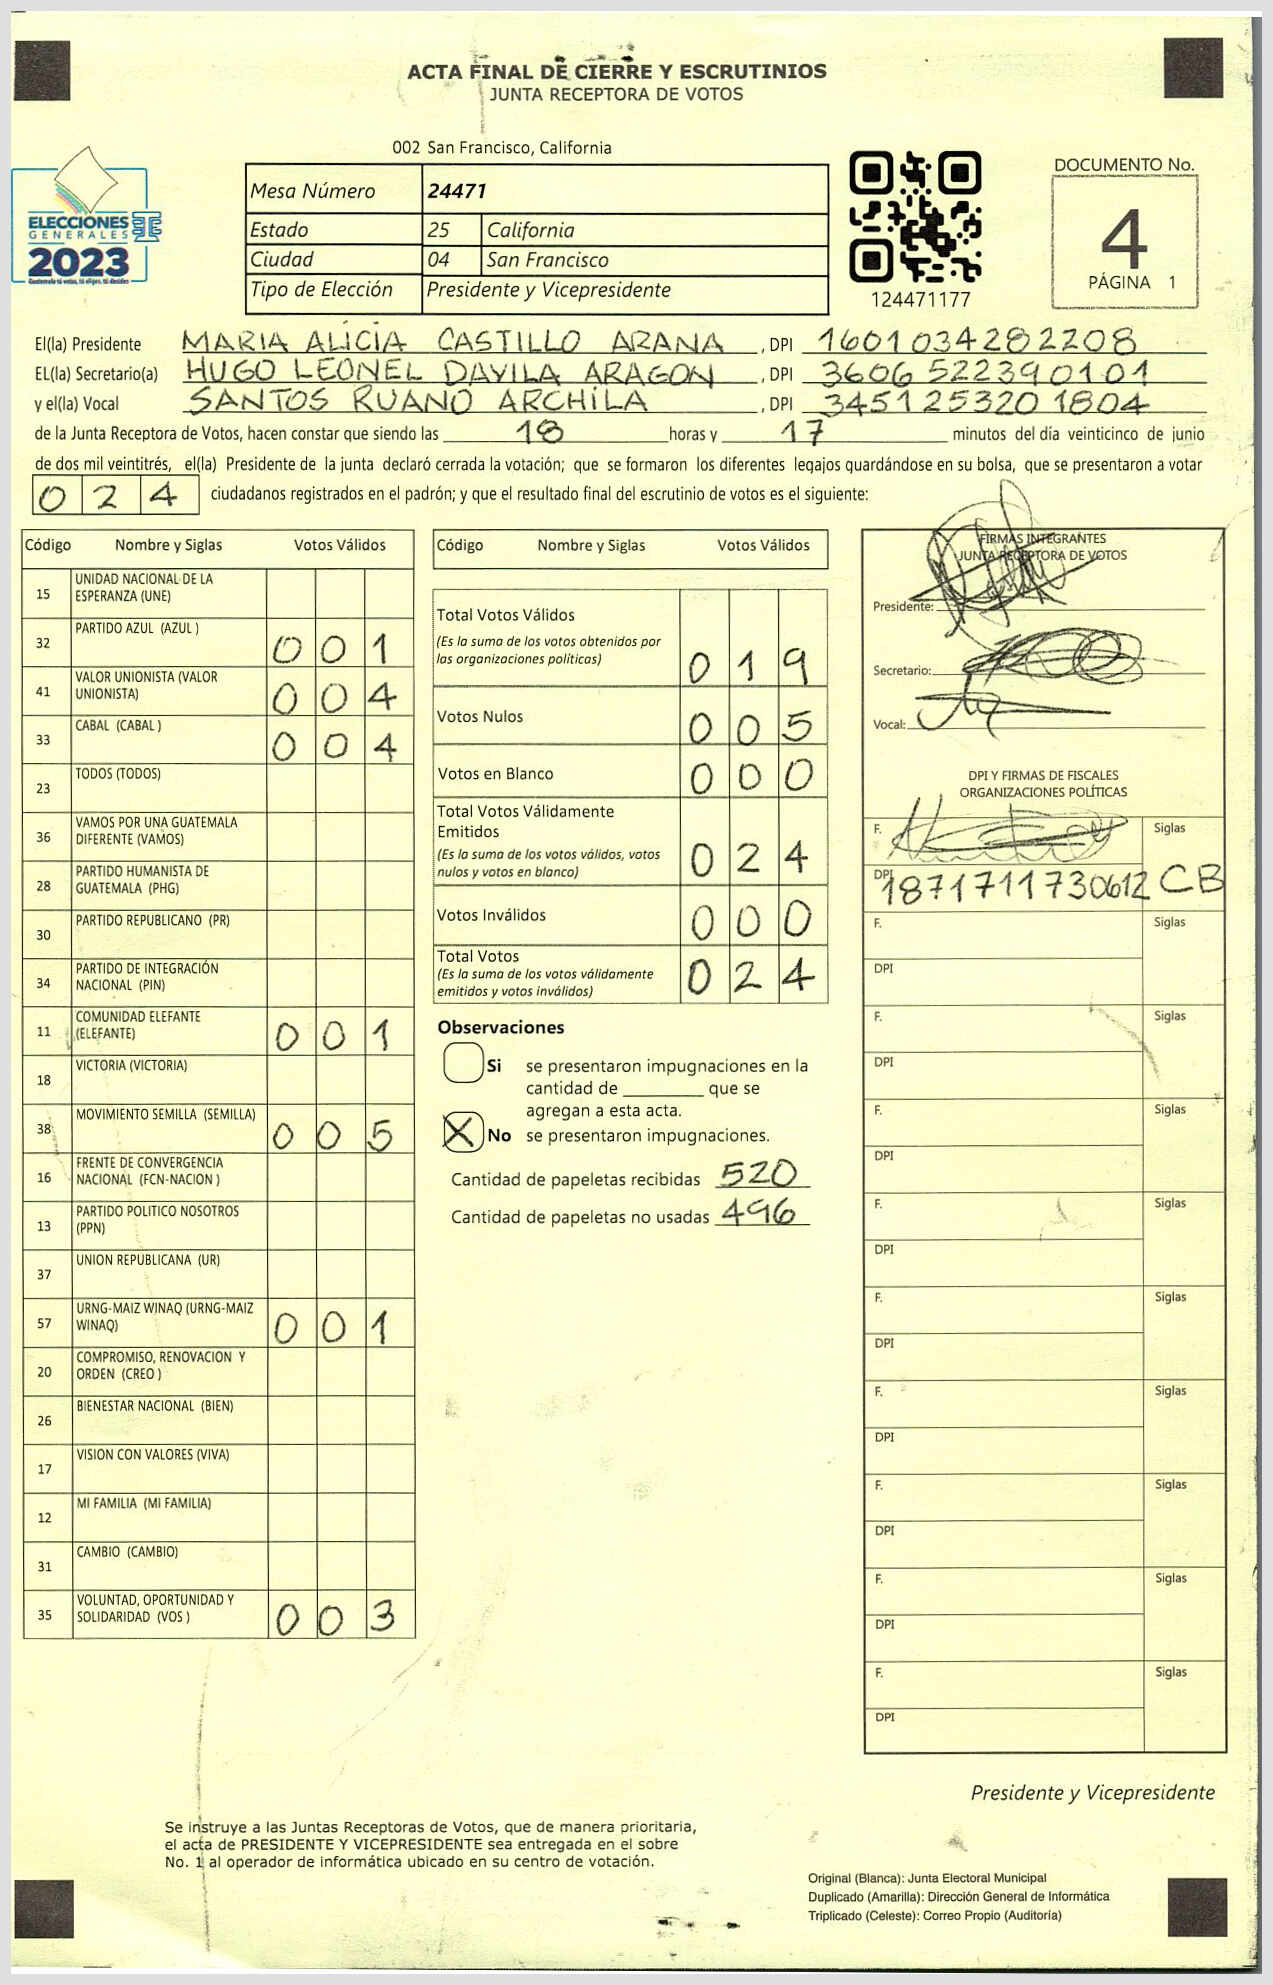 ACTA FINAL DE CIERRE Y ESCRUTINIOS
JUNTA RECEPTORA DE VOTOS
002 San Francisco, California
ELECCIONES
GENERALES
2023
Guatemala tú votas, tú eliges, tú decides
Mesa Número 24471
Estado 25 California
Ciudad 04 San Francisco
Tipo de Elección Presidente y Vicepresidente
124471177
DOCUMENTO No.
4
PÁGINA 1
El(la) Presidente MARIA ALICIA CASTILLO ARANA , DPI 1601034282208
EL(la) Secretario(a) HUGO LEONEL DAVILA ARAGON , DPI 3606522390101
y el(la) Vocal SANTOS RUANO ARCHILA , DPI 3451253201804
de la Junta Receptora de Votos, hacen constar que siendo las 18 horas y 17 minutos del día veinticinco de junio
de dos mil veintitrés, el(la) Presidente de la junta declaró cerrada la votación; que se formaron los diferentes legajos guardándose en su bolsa, que se presentaron a votar
024 ciudadanos registrados en el padrón; y que el resultado final del escrutinio de votos es el siguiente:
Código Nombre y Siglas Votos Válidos
15 UNIDAD NACIONAL DE LA
ESPERANZA (UNE)
32 PARTIDO AZUL (AZUL ) 001
41 VALOR UNIONISTA (VALOR
UNIONISTA) 004
33 CABAL (CABAL ) 004
23 TODOS (TODOS)
36 VAMOS POR UNA GUATEMALA
DIFERENTE (VAMOS)
28 PARTIDO HUMANISTA DE
GUATEMALA (PHG)
30 PARTIDO REPUBLICANO (PR)
34 PARTIDO DE INTEGRACIÓN
NACIONAL (PIN)
11 COMUNIDAD ELEFANTE
(ELEFANTE) 001
18 VICTORIA (VICTORIA)
38 MOVIMIENTO SEMILLA (SEMILLA) 005
16 FRENTE DE CONVERGENCIA
NACIONAL (FCN-NACION )
13 PARTIDO POLITICO NOSOTROS
(PPN)
37 UNION REPUBLICANA (UR)
57 URNG-MAIZ WINAQ (URNG-MAIZ
WINAQ) 001
20 COMPROMISO, RENOVACION Y
ORDEN (CREO )
26 BIENESTAR NACIONAL (BIEN)
17 VISION CON VALORES (VIVA)
12 MI FAMILIA (MI FAMILIA)
31 CAMBIO (CAMBIO)
35 VOLUNTAD, OPORTUNIDAD Y
SOLIDARIDAD (VOS ) 003
Código Nombre y Siglas Votos Válidos
Total Votos Válidos
(Es la suma de los votos obtenidos por
las organizaciones políticas) 019
Votos Nulos 005
Votos en Blanco 000
Total Votos Válidamente
Emitidos
(Es la suma de los votos válidos, votos
nulos y votos en blanco) 024
Votos Inválidos 000
Total Votos
(Es la suma de los votos válidamente
emitidos y votos inválidos) 024
Observaciones
Si se presentaron impugnaciones en la
cantidad de ________ que se
agregan a esta acta.
X No se presentaron impugnaciones.
Cantidad de papeletas recibidas 520
Cantidad de papeletas no usadas 496
FIRMAS INTEGRANTES
JUNTA RECEPTORA DE VOTOS
Presidente:
Secretario:
Vocal:
DPI Y FIRMAS DE FISCALES
ORGANIZACIONES POLÍTICAS
F. Siglas
DPI 1871711730612 CB
F. Siglas
DPI
F. Siglas
DPI
F. Siglas
DPI
F. Siglas
DPI
F. Siglas
DPI
F. Siglas
DPI
F. Siglas
DPI
F. Siglas
DPI
F. Siglas
DPI
Presidente y Vicepresidente
Se instruye a las Juntas Receptoras de Votos, que de manera prioritaria,
el acta de PRESIDENTE Y VICEPRESIDENTE sea entregada en el sobre
No. 1 al operador de informática ubicado en su centro de votación.
Original (Blanca): Junta Electoral Municipal
Duplicado (Amarilla): Dirección General de Informática
Triplicado (Celeste): Correo Propio (Auditoría)